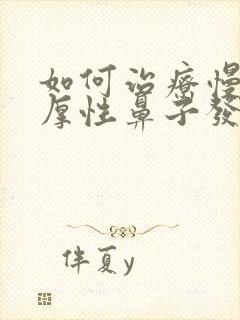 如何治療慢
厚性鼻子發
伴夏y